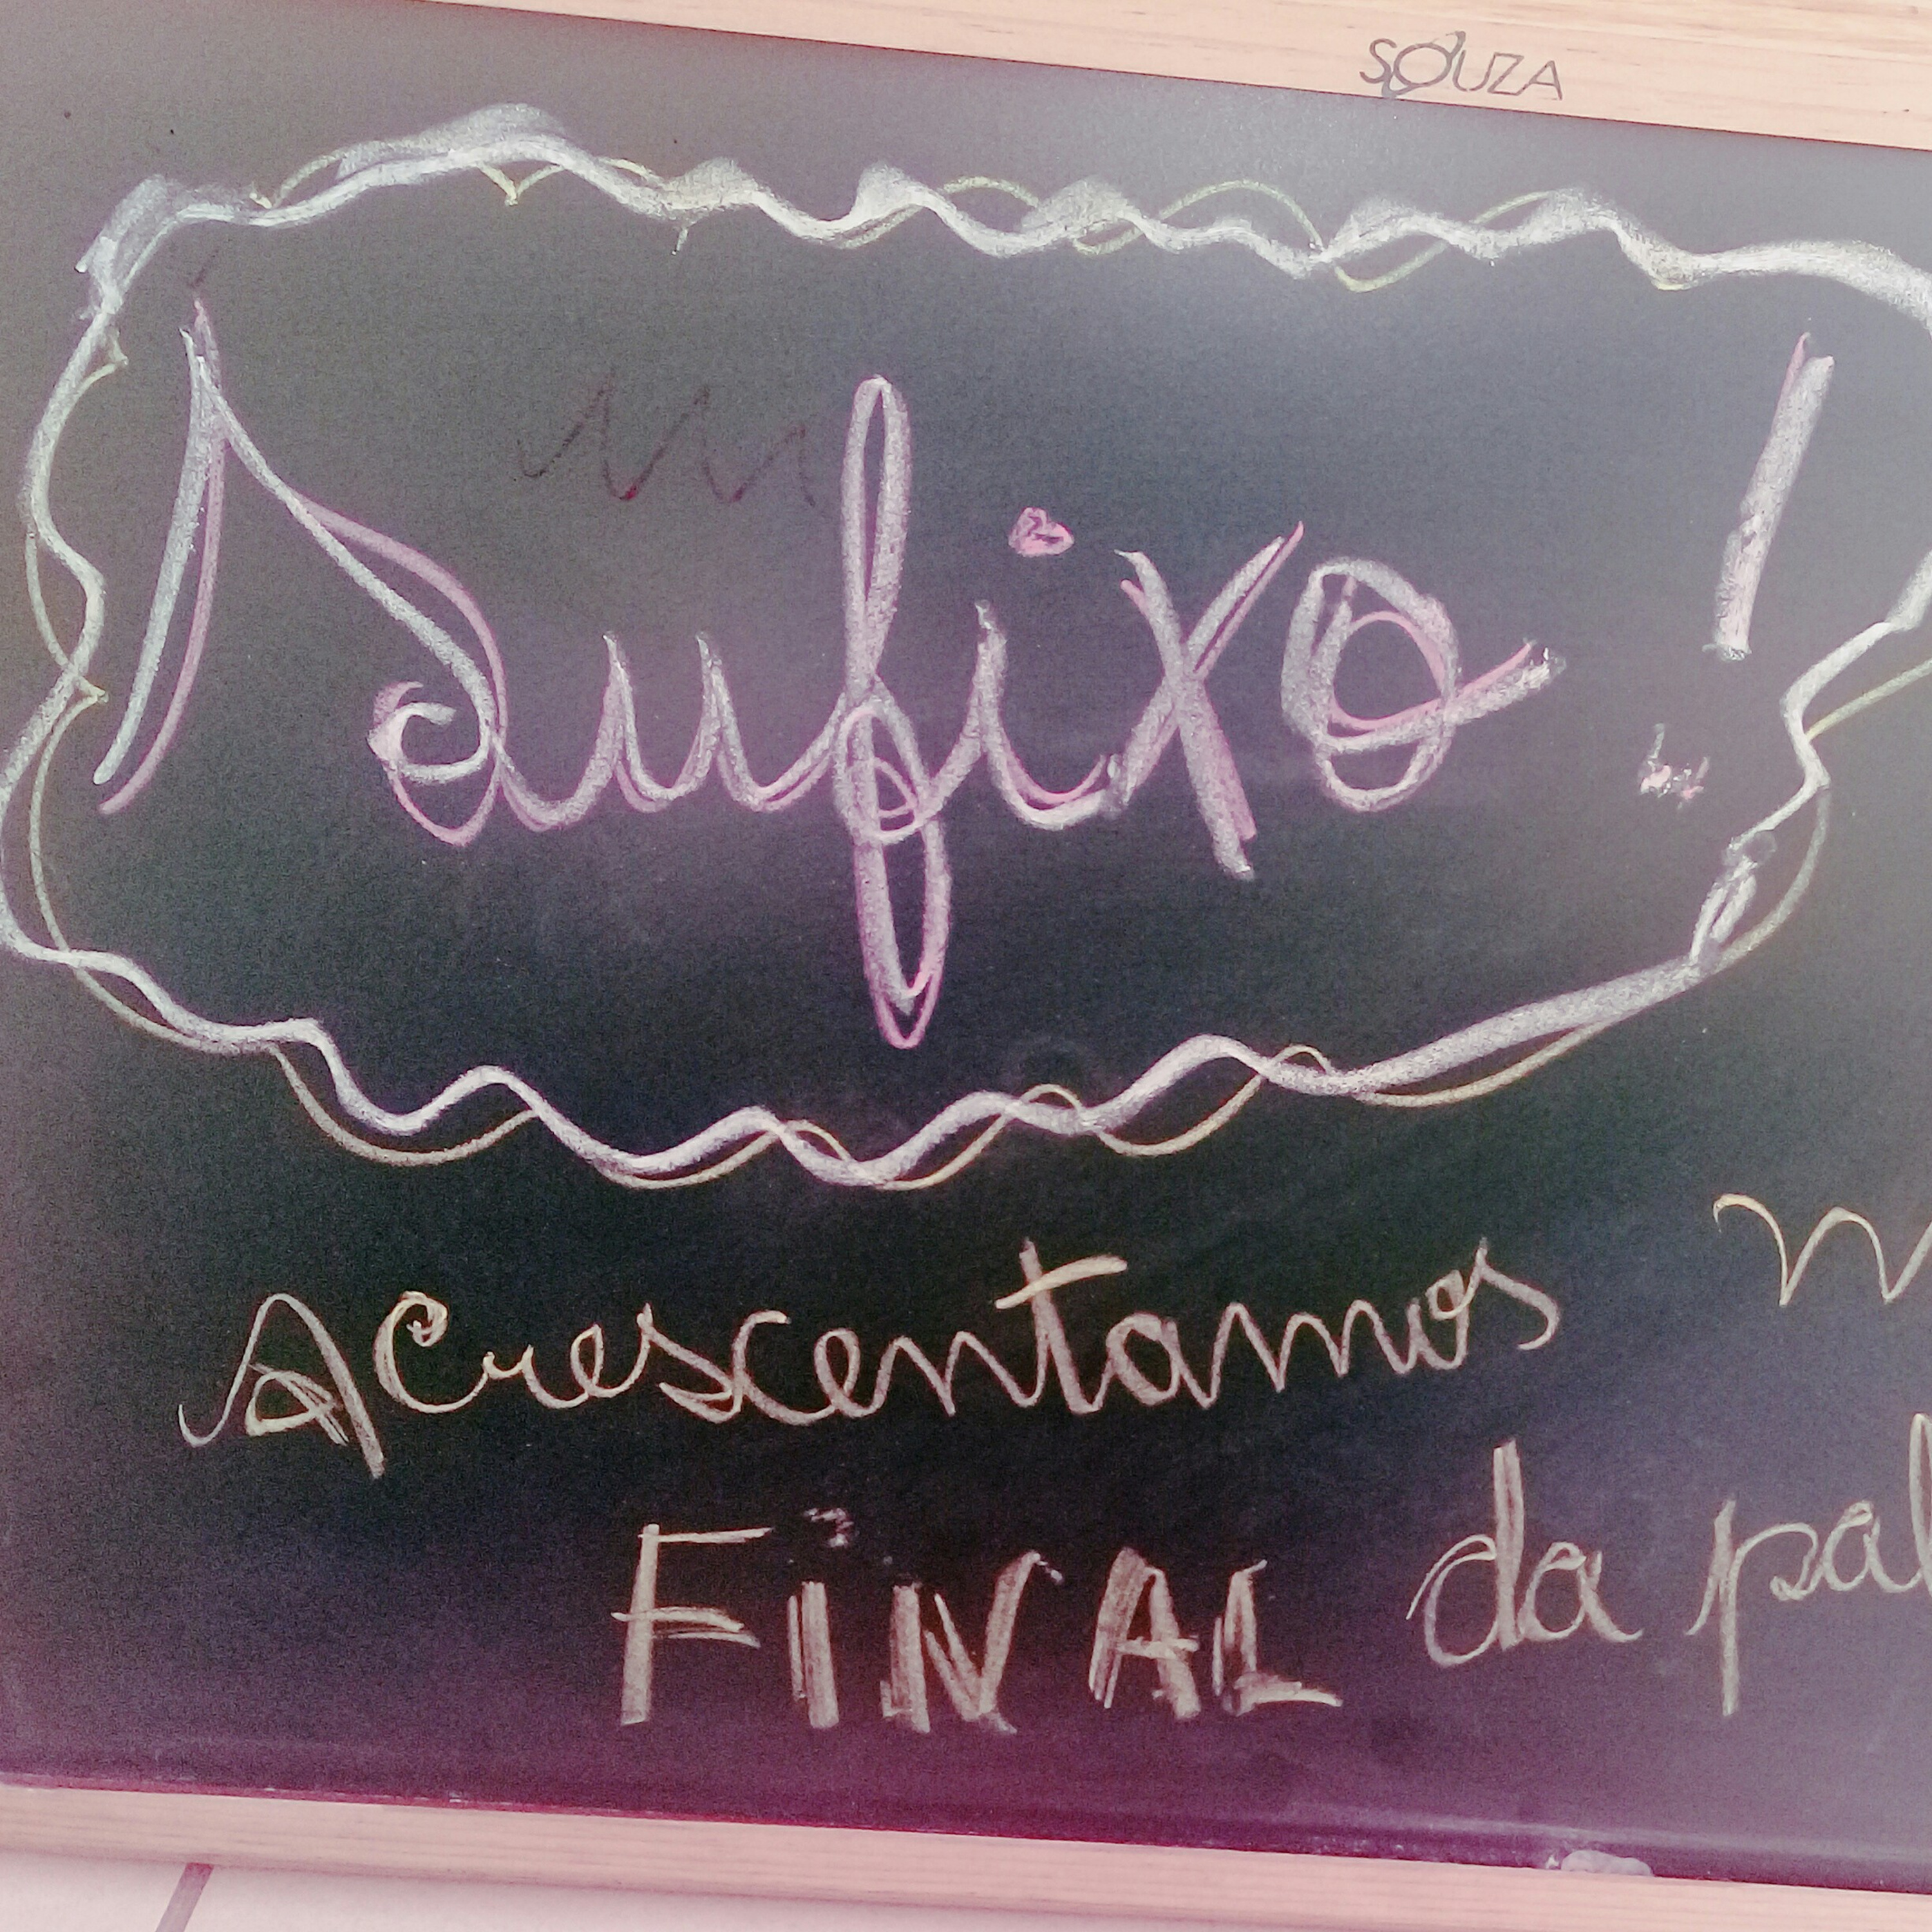 SOUZA
Sufixo!
Acrescentamos
FiNAL da pal